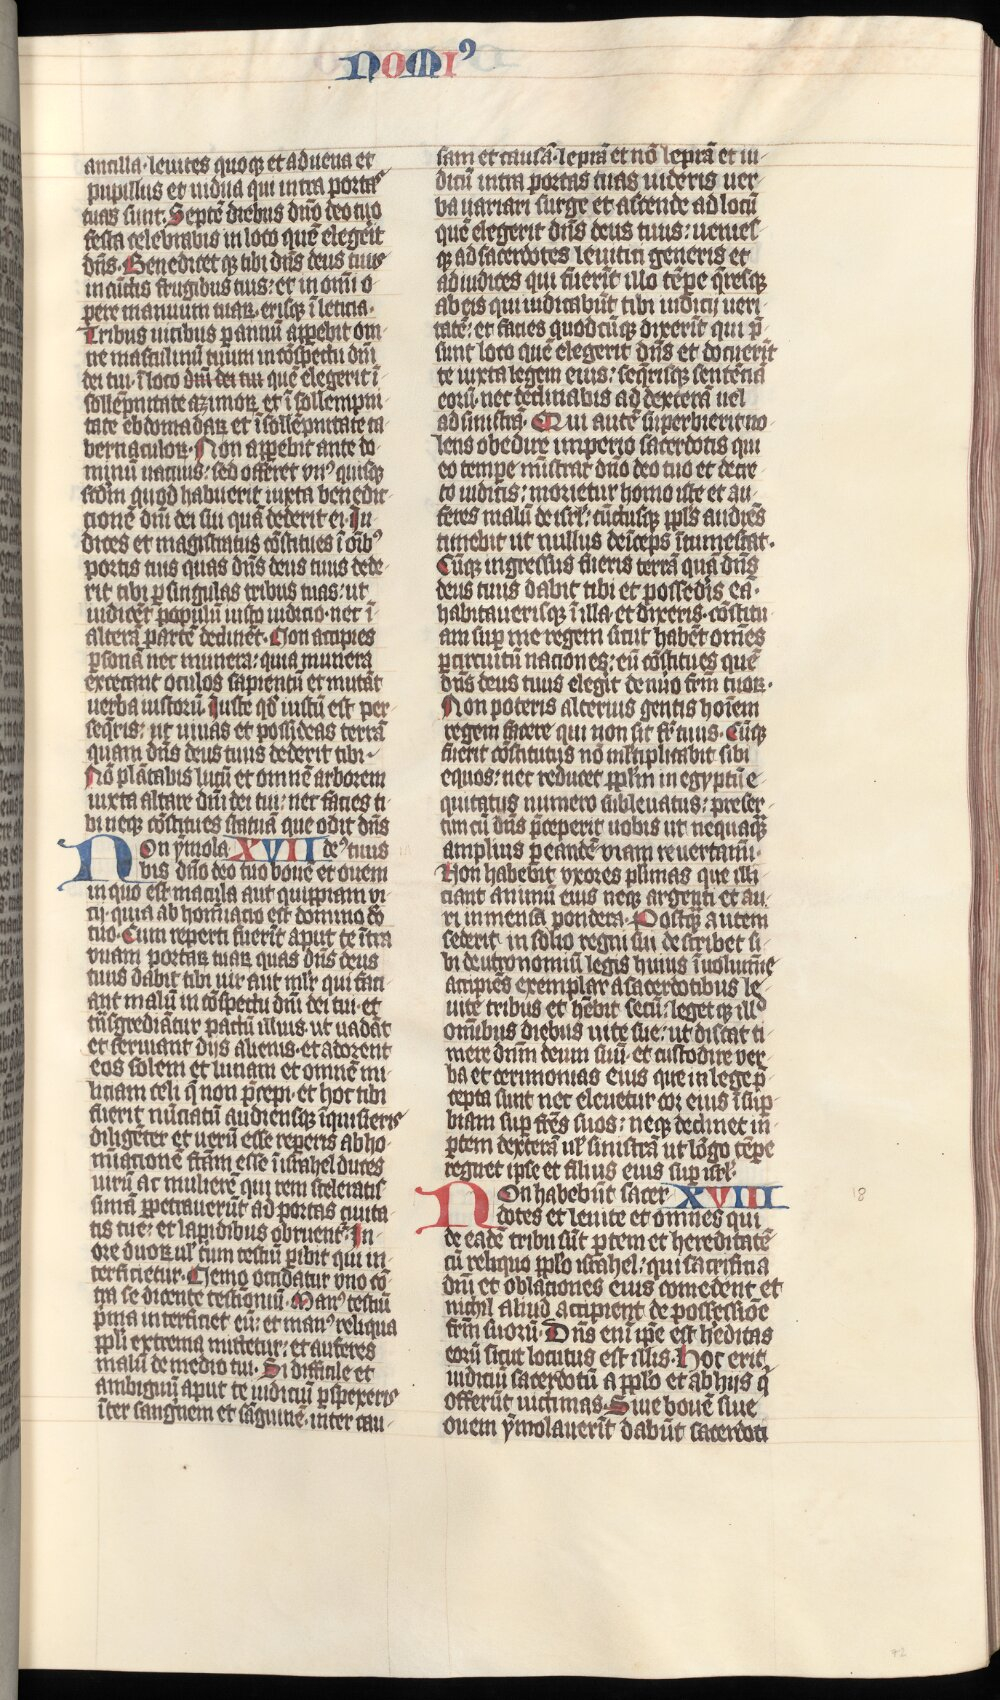 Nomiꝰ
ancilla· leuites quoqꝫ et aduena et
pupillus et uidua qui intra portas
tuas sunt. Septē diebus dño deo tuo
festa celebrabis in loco quē elegerit
dñs. Benedicet qꝫ tibi dñs deus tuus
in cūctis frugibus tuis: et in omī o-
pere manuum tuaꝝ· erisqꝫ ī leticia·
Tribus uicibus p annū appebit om-
ne masculinū tuum in cōspectu dñi
dei tui· ī loco dñi dei tui quē elegerit ī
sollēpnitate azimoꝝ et ī sollempni-
tate ebdomadaꝝ et ī sollēpnitate ta-
bernaculoꝝ· Non appebit ante do-
minū uacuus: sed offeret vnꝰ quisqꝫ
scdm quod habuerit iuxta benedic-
cionē dñi dei sui quā dederit ei· Iu-
dices et magistratus cōstitues ī oībꝰ
portis tuis quas dñs deus tuus dede-
rit tibi p singulas tribus tuas: ut
iudicēt populū iusto iudicio· nec ī
alterā partē declinēt· Non accipies
psonā nec munera: quia munera
excecant oculos sapientū et mutāt
uerba iustorū Iuste qd iustū est per-
seqris: ut uiuas et possideas terrā
quam dñs deus tuus dederit tibi·
Nō plātabis lucū et omnē arborem
iuxta altare dñi dei tui: nec facies ti-
bi neqꝫ cōstitues statuā que odit dñs
Non ymola XVII deꝰ tuus
bis dño deo tuo bouē et ouem
in quo est macula aut quippiam vi-
cij· quia ab hominacio est domino deo
tuo· Cum reperti fuerīt aput te ītra
vnam portaꝝ tuaꝝ quas dñs deus
tuus dabit tibi uir aut mlr qui faci-
ant malū in cōspectu dñi dei tui· et
trāsgrediātur pactū illius· ut uadāt
et seruiant dijs alienis· et adorent
eos solem et lunam et omnē mi-
liciam celi q̄ non p̄cepi· et hoc tibi
fuerit nūciatū audiensqꝫ īquisieris
diligēter et uerū esse reperis abho-
minacionē fcām esse ī israhel duces
uirū ac mulierē qui rem sceleratis-
simā ppetrauerūt ad portas ciuita-
tis tue: et lapidibus obruentur· In
ore duoꝝ ul' trium testiū pibit qui in-
terficietur· Nemo occidatur vno cō-
tra se dicente testioniū· Manꝰ testiū
prima interficiet eū: et manꝰ reliqua
ppli extrema mittetur: et auferes
malū de medio tui· Si difficile et
ambiguū aput te iudiciū pspexeris
īter sanguem et sāguinē· inter cau-
sam et causā· leprā et nō leprā et iu-
diciū intra portas tuas uideris uer-
ba uariari surge et ascende ad locū
quē elegerit dñs deus tuus: ueniesī-
qꝫ ad sacerdotes leuitici generis et
ad iudices qui fuerīt illo tēpe q̄resqꝫ
ab eis qui iudicabūt tibi iudicij ueri-
tatē: et facies quodcūqꝫ dixerīt qui p̄-
sunt loco quē elegerit dñs et docuerīt
te iuxta legem eius: seqrisqꝫ sentēciā
eorū· nec declinabis ad dexterā uel
ad sinistrā· Qui autē superbierit no-
lens obedire imperio sacerdotis qui
eo tempe mīstrat dño deo tuo et decre-
to iudicis: morietur homo iste et au-
feres malū de isrl': cūctusqꝫ ppls audiēs
timebit ut nullus deīceps ītumescat·
Cūqꝫ ingressus fueris terrā quā dñs
deus tuus dabit tibi et possedis eā·
habitauerisqꝫ ī illa· et dixeris· cōstitu-
am sup me regem sicut habēt omēs
pcircuitū nacionēs: eū cōstitues quē
dñs deus tuus elegit de nūo frm tuoꝝ·
Non poteris alterius gentis hoīem
regem facere qui non sit fr tuus· Cūqꝫ
fuerit cōstitutus nō m'ltiplicabit sibi
equos: nec reducet pplm in egyptū e-
quitatus numero subleuatus: preser-
tim cū dñs p̄ceperit uobis ut nequaqꝫ
amplius p eandē viam reuertamī·
Non habebit vxores plimas que illi-
ciant animū eius neqꝫ argenti et au-
ri inmensa pondera· Postqꝫ autem
sederit in solio regni sui describet si-
bi deutronomiū legis huius ī uolumīe
accipiēs exemplar a sacerdotibus le-
uite tribus et hēbit secū: leget qꝫ illd
omibus diebus uite sue: ut discat ti-
mere dñm deum suū· et custodire ver-
ba et cerimonias eius que in lege p̄-
cepta sunt nec eleuetur cor eius ī sup-
biam sup frēs suos: neqꝫ declinet in
ptem dexterā ul' sinistrā ut lōgo tēpe
regnet ipse et filius eius sup isrl'·
Non habebūt sacer XVIII
dotes et leuite et omnes qui
de eadē tribu sūt ptem et hereditatē
cū reliquo pplo israhel: qui sacrificia
dñi et oblaciones eius comedent et
nichil aliud accipient de possessiōe
frm suorū· Dñs eni ipe est hēditas
eorū sicut locutus est illis· Hoc erit
iudiciū sacerdotū a pplo et ab hijs q̄
offerūt uictimas· Siue bouē siue
ouem ymolauerīt dabūt sacerdoti
18
72